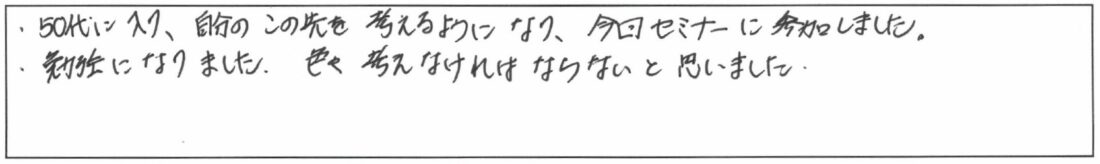 ・50代に入り、自分のこの先を考えるようになり、今回セミナーに参加しました。
・勉強になりました. 色々考えなければならないと思いました.